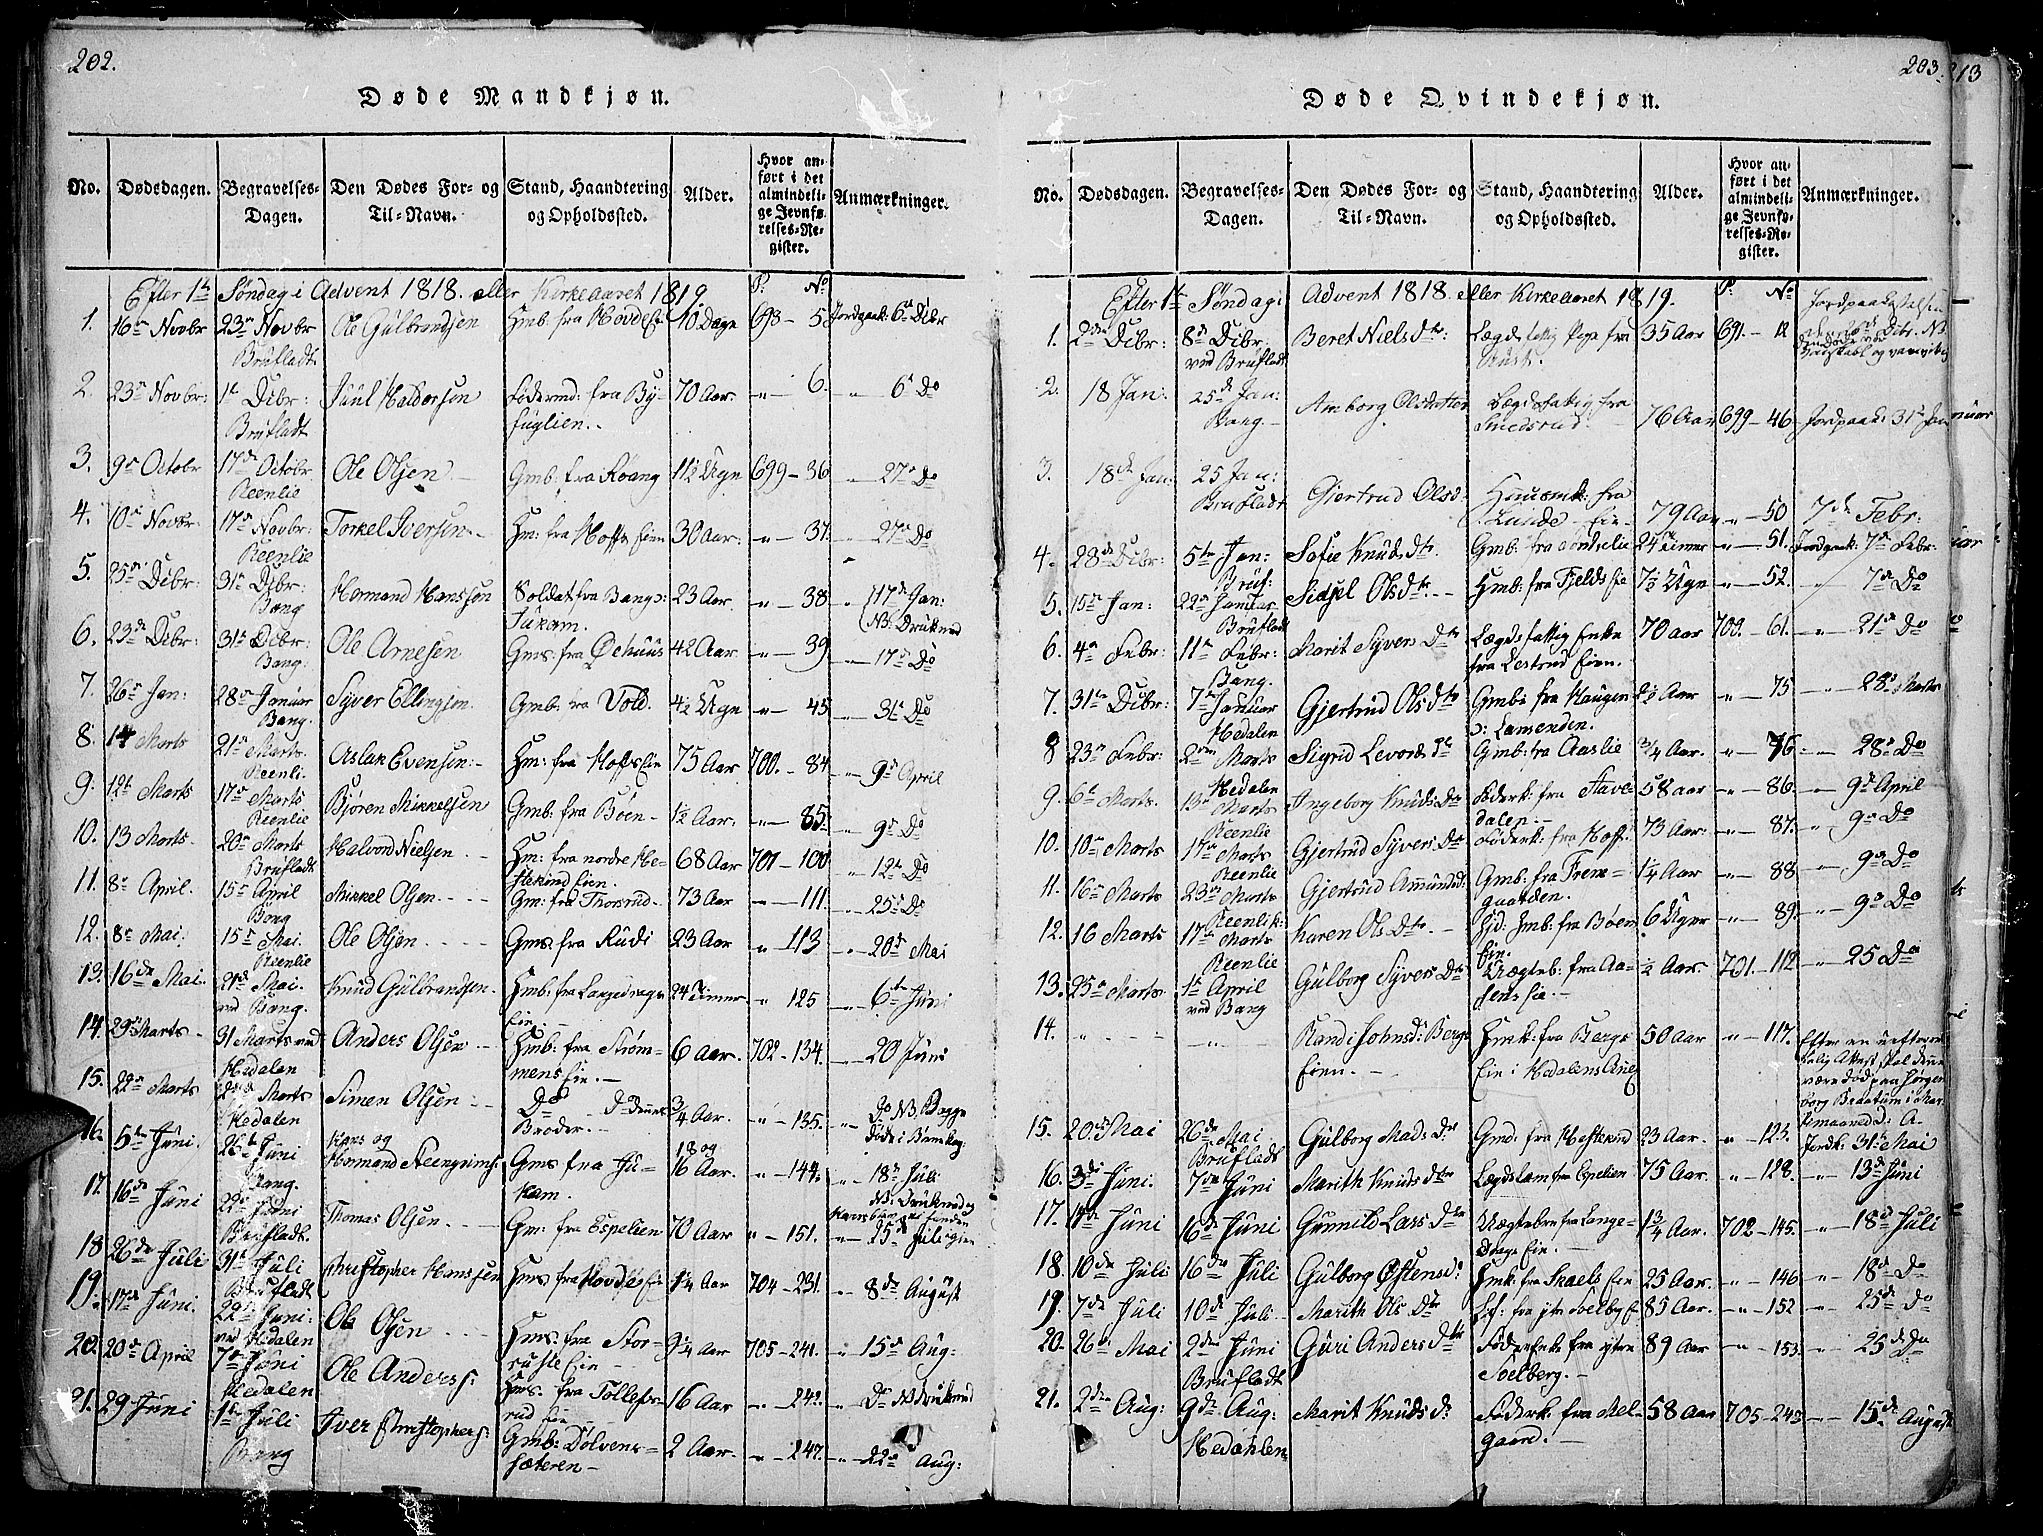 202.
Døde Mandkjøn.
No. Dødsdagen. Begravelses-Dagen. Den Dødes For- og Til-Navn. Stand, Haandtering og Opholdssted. Alder. Hvor anført i det almindelige Jevnførelses-Register. Anmærkninger.
Efter 1te Søndag i Advent 1818. eller Kirkeaaret 1819. P: No
1. 16de Novbr 23de Novbr Brufladt Ole Gulbrandsen Hmb. fra Hovdeeie 10 Dage 698 - 5. Jordpaak: 6te Dcbr
2. 23de Novbr: 1te Dcbr: Brufladt Juul Haldorsen Fødermd: fra Byfuglien. 70 Aar. " - 6. " 6te Do
3. 9de Octobr 17de Octobr. Reenlie Ole Olsen Gmb: fra Roang 11½ Ugn 699 - 36 " 27de Do
4. 10de Novbr. 17de Novbr: Reenlie Torkel Iversen Hm: fra Hoffs Eien 30 Aar: " - 37. " 27de Do
5. 25de Dcbr: 31te Dcbr: Bang Hermand Hanssøn Soldat fra Bangs: Jukam. 23 Aar. " - 38 " 17de Jan: NB: Druknet
6. 23de Dcbr: 31te Dcbr: Bang. Ole Arnesen Gms: fra Ødehuus 42 Aar " - 39 " 17de Do
7. 26de Jan: 28de Januar Bang. Syver Ellingsen Gmb: fra Vold. 4½ Ugn " - 45 " 31te Do
8. 14 Marts 21de Marts. Reenli. Aslak Evensen Hm: fra Hoffs Eie 75 Aar 700. - 84 " 9de April
9. 12te Marts 17de Marts Reenlie Bjøren Mikkelsen Gmb: fra Bøen ½ Aar. " - 85 " 9de Do
10. 13 Marts. 20de Marts Brufladt Halvord Nielsen Hm: fra nordre Hestekind Eien. 68 Aar 701 - 100 " 12te Do
11. 8de April. 15de April Bang Mikkel Olsen Gm: fra Thorsrud 73 Aar " - 111. " 25de Do
12. 8de Mai. 15de Mai. Reenlie Ole Olsen Gms. fra Rudi 23 Aar " 113 " 20de Mai
13. 16de Mai. 21de Mai. ved Bang. Knud Gulbrandsen. Hmb: fra Langedrags Eie. 24 Timer " 125 " 6te Juni
14. 29de Marts 31 Marts ved Hedalen Anders Olsen Hmb: fra Strømmens Eie. 6 Aar. 702 - 134. " 20 Juni
15. 22de Marts Marts Hedalen Simen Olsen Do Dennes Broder. ¾ Aar. " - 135. Do NB. Begge Døde i Børnekop.
16. 5te Juni. 26te Juni Bang. Hans og Hermand Steengrims: Gms fra Jukam. 18 og 16 Aar. " - 144. " 18de Juli NB: Druknede
17. 16de Juni 22de Juni Brufladt. Thomas Olsen Gm: fra Espelien 70 Aar " - 151. " 25de Juli
18. 26de Juli 31te Juli Brufladt Christopher Hanssen Hms fra Hovdes Eie 1¼ Aar 704 - 231. " 8de August
19. 17de Juni. 22de Juni: ved Hedalen Ole Olsen Hms: fra Storruste Eie 9¼ Aar 705 - 241. " 15de Aug:
20. 20de April 7de Juni Hedalen Ole Anders: Hms: fra Tollefsrud Eie 16 Aar " - 242. " Do NB Druknet
21. 29 Juni 1te Juli Bang Iver Christophers: Gmb: Dølvensæteren 2 Aar. " - 247. " 22de Aug:
203.
Døde Qvindekjøn.
No. Dødsdagen. Begravelses-Dagen. Den Dødes For- og Til-Navn. Stand, Haandtering og Opholdssted. Alder. Hvor anført i det almindelige Jevnførelses-Register. Anmærkninger.
Efter 1te Søndag i Advent 1818. eller Kirkeaaret 1819. P: No
1. 2den Dcbr: 8de Dcbr: ved Brufladt Beret Nielsdtr: Lægdsfattig Pige fra Rust. 35 Aar 691. - 12 Jordpaakastelsen Dcbr. NB
2. 18 Jan: 25de Jan: Bang Amborg Olsdatter Lægdsfattig fra Smedsrud. 76 Aar 699 - 46 Jordpaak: 31te Jan
3. 18de Jan: 25 Jan: Brufladt Gjertrud Olsd: Huusmk: fra Lunde Eie 79 Aar " - 50 7de Febr:
4. 28de Dcbr: 5te Jan: Bruf: Sofie Knuds Dtr Gmb: fra 24 Timer " - 51. Jordpaak: 7de Febr:
5. 15de Jan: 22de Januar Brufladt Sidsel Ols Dtr Hmb: fra Fjelds Eie 7½ Ugn " - 52. " 7de Do
6. 4de Febr: 11te Febr: Bang. Marit Syvers Dtr Lægdsfattig Enke fra Lestrud Eien. 70 aar 700. - 61. " 21de Do
7. 31te Dcbr: 7de Januar Hedalen Gjertrud Ols Dtr Gmb: fra Haugen i Lamenden. 2½ Aar " - 75 " 28de Marts
8 23de Febr: 2den Marts Hedalen Sigrid Levords Dtr Gmb: fra Aaslie ¾ Aar. " - 76 " 28de Do
9. 6te Marts. 13de Marts Reenlie Ingeborg Knuds Dtr Føderk: fra Havedalen. 58 aar " - 86. " 9de April
10. 10de Marts 17de Marts Reenlie Gjertrud Syvers Dtr Føderk: fra Hoff: 73 Aar: " - 87. " 9de Do
11. 16de Marts 23de Marts Reenlie: Gjertrud Amundsd: Gmb: fra ¼ Aar " - 88 " 9de Do
12. 16 Marts 17de Marts Reenlie Karen Ols Dtr. Gjd: Hmb: fra Bøen Eie. 6 Uger " - 89. " 9de Do
13. 25de Marts 1te April ved Bang Gulborg Syvers Dtr Uægteb: fra Aasens Eie. ½ Aar. 701. - 112 " 25 Do
14. " " Randi Johnsd: Bergseien. Hmk: fra Bergs Eie i Hedalens Anex 50 Aar " - 117. Efter en uefterretlig Attest skal denne være død paa Jørgen borg Braatum i Martimaaned d: A.
15. 20de Mai 26de Mai Brufladt Gulborg Mads: Dtr Gmd: fra Hestekind 23 Aar. " - 123. Jordk: 31te Mai
16. 3de Juni. 7de Juni Marith Knuds Dtr Lægdslem fra Espelien 75 Aar " - 128. " 13de Juni
17. 11te Juni 16de Juni Gunnild Lars Dtr Uægtebrn fra Langedrags Eie. 1¾ Aar. 702 - 145. " 18de Juli
18. 10de Juli 16de Juli Gulborg Østensd: Hmk: fra Skaels Eie 25 Aar. " - 146 " 18de Do
19. 7de Juli 10de Juli Marith Ols Dtr fra ytre Soelby Eie 85 Aar. " - 152 " 25de Do
20. 26de Mai 2den Juni Brufladt Guri Anders Dtr Føderenke fra ytre Soelberg. 89 Aar " - 153. " 25de Do
21. 2den Aug: 9de Aug: Hedahlen Marit Knuds D: Føderk: fra Melgaard. 58 Aar 705 - 243 " 15de August
213